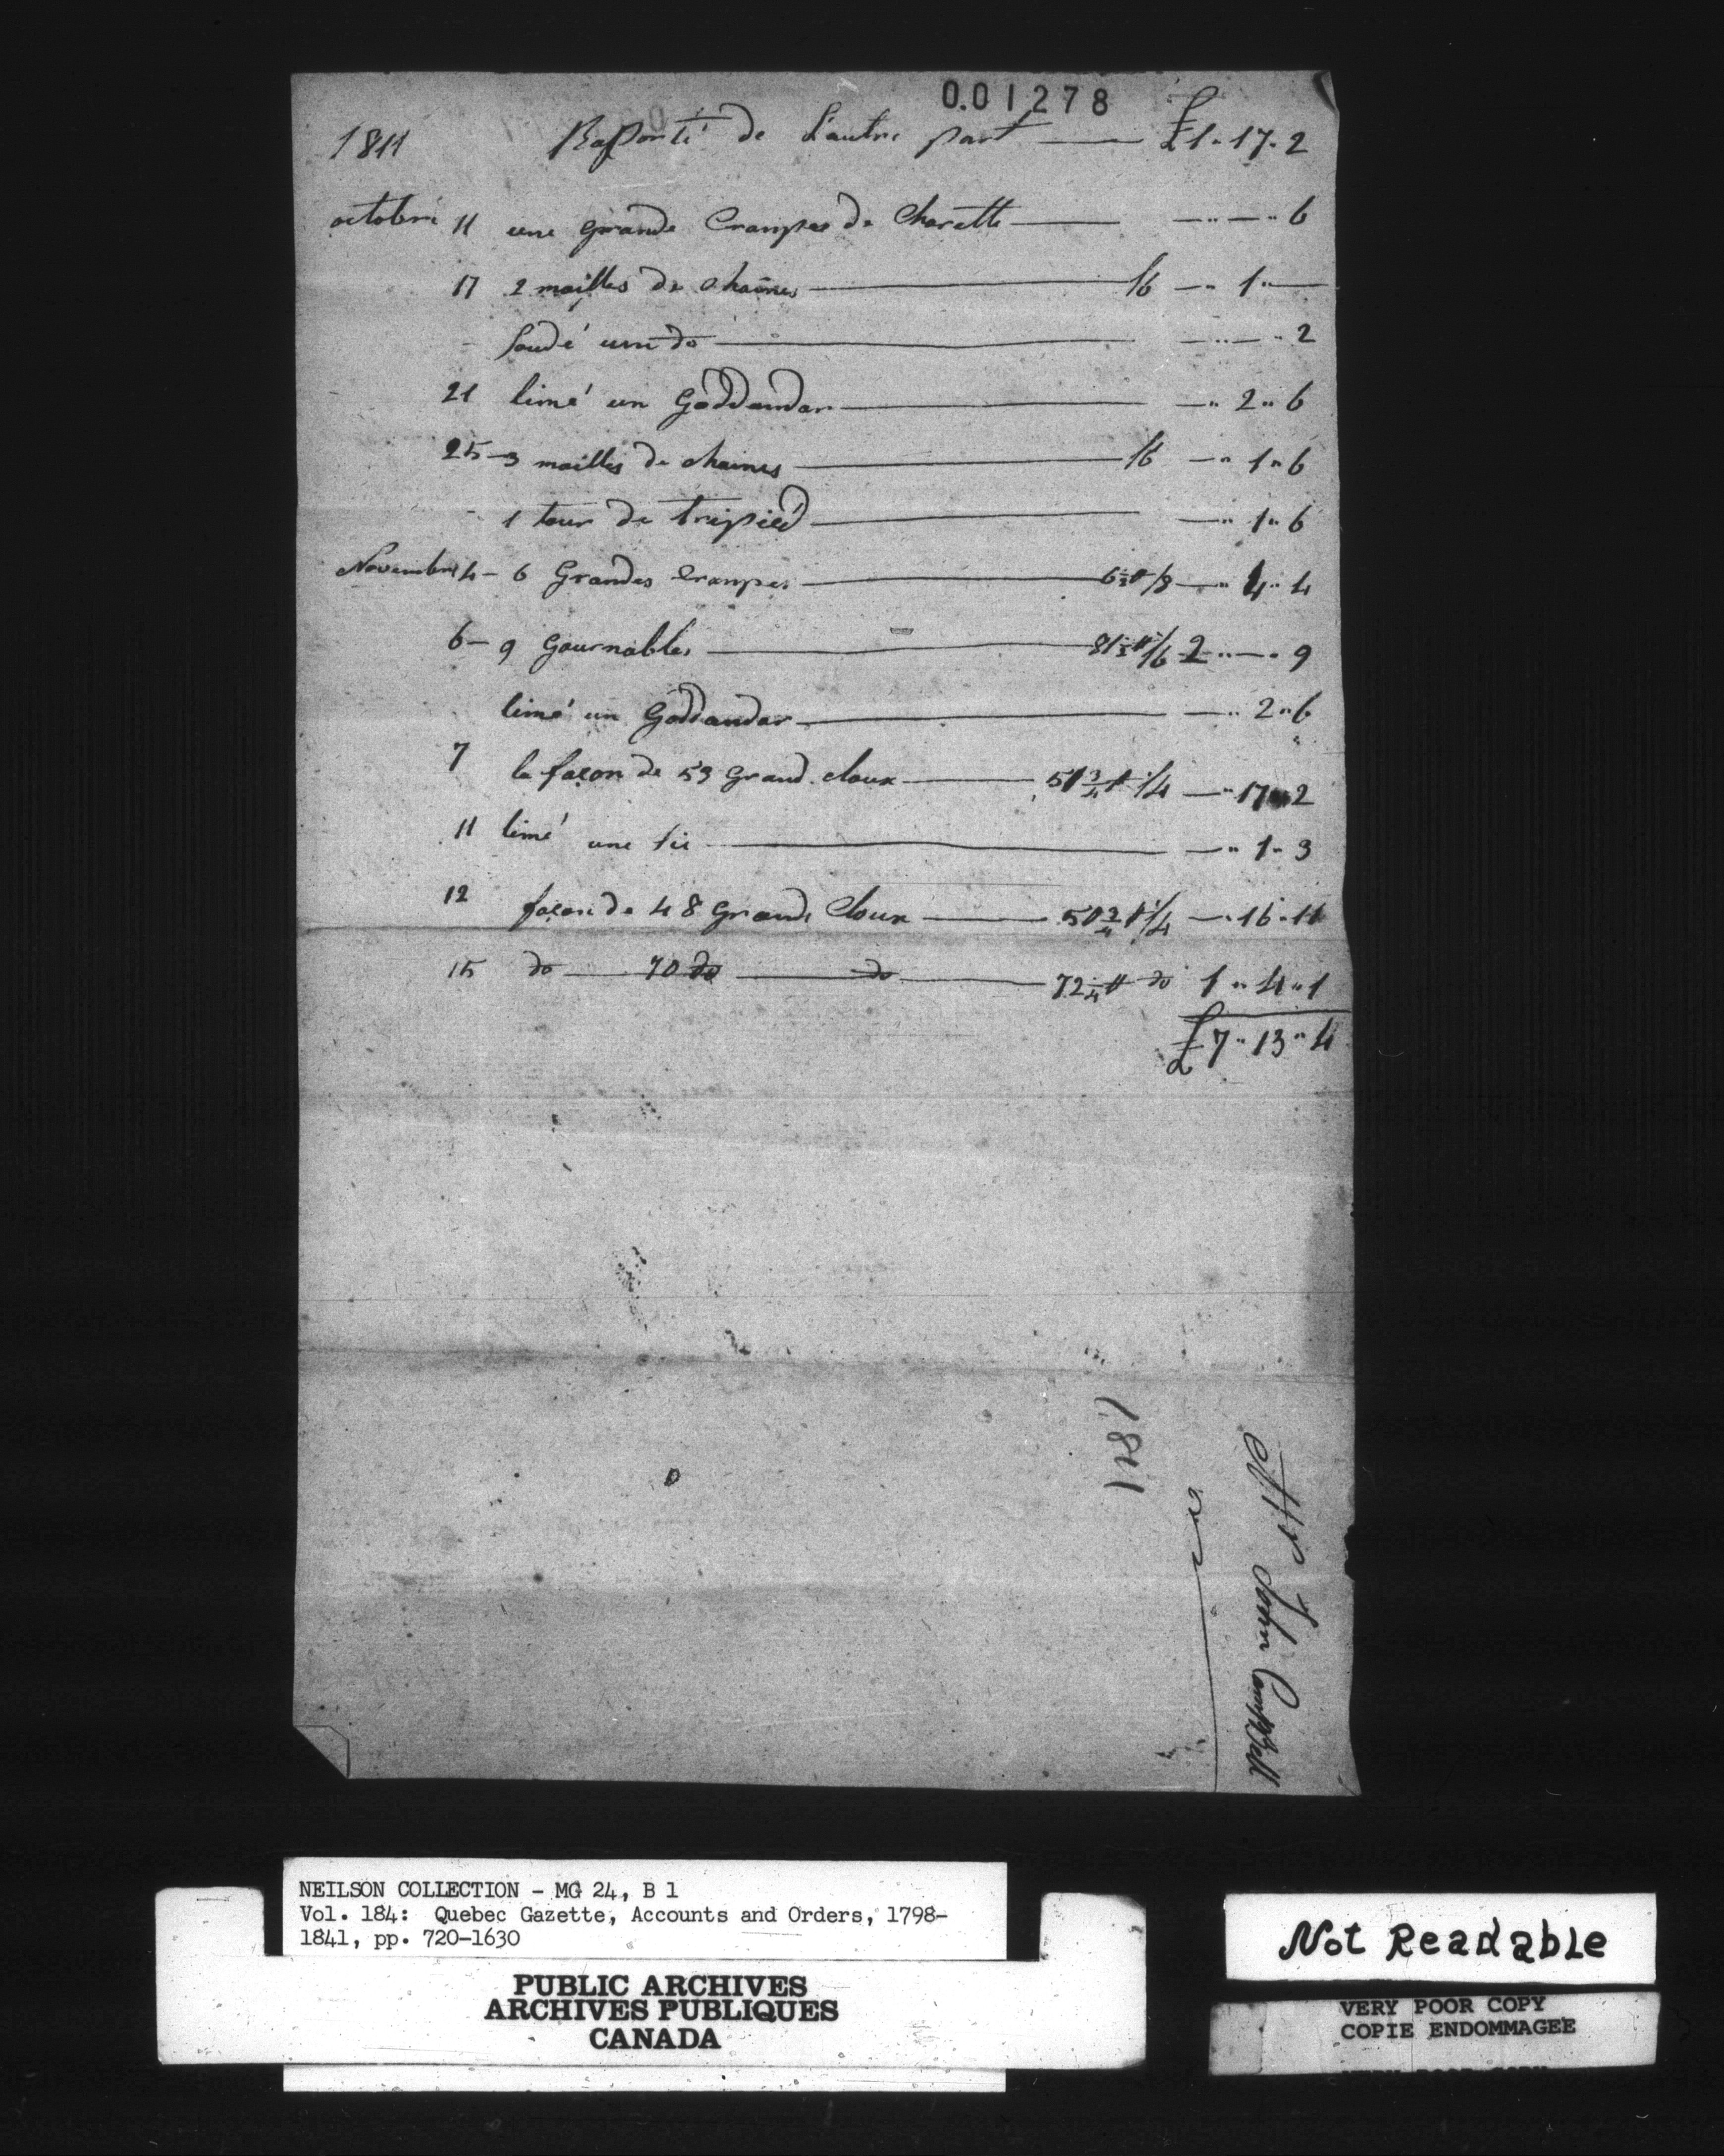 001278
1811 Raporté de L'autre part — £1 " 17 " 2
octobre 11 une grande Crampe de Charette — — " — " 6
17 2 mailles de chaines — /6 — " 1 " —
Soudé une do — — " — " 2
21 limé un Goddandar — — " 2 " 6
25 — 3 mailles de chaines — /6 — " 1 " 6
1 tour de tripied — — " 1 " 6
Novembre 4 — 6 Grandes Crampes — 6½ # /8 — " 4 " 4
6 — 9 Gournables — 81½ # /6 2 " — " 9
limé un Goddandar — — " 2 " 6
7 la façon de 53 Grand cloux — 51¾ # /4 — " 17 " 2
11 limé une Sie — — " 1 " 3
12 façon de 48 Grands Cloux — 50¾ # /4 — " 16 " 11
15 do — 70 do — do — 72¼ # do 1 " 4 " 1
£7 " 13 " 4
1811
Mr John Campbell
NEILSON COLLECTION - MG 24, B 1
Vol. 184: Quebec Gazette, Accounts and Orders, 1798-
1841, pp. 720-1630
PUBLIC ARCHIVES
ARCHIVES PUBLIQUES
CANADA
Not Readable
VERY POOR COPY
COPIE ENDOMMAGEE